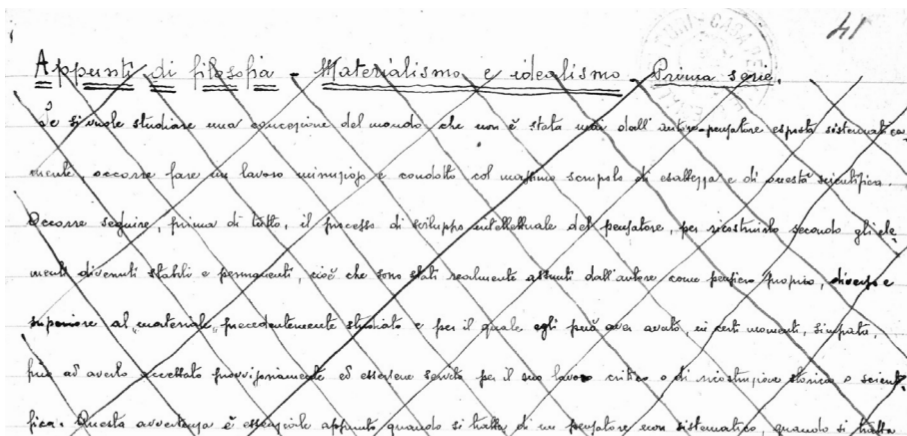 41
Appunti di filosofia - Materialismo e idealismo - Prima serie.
Se si vuole studiare una concezione del mondo che non è stata mai dall'autore-pensatore esposta sistematica-
mente, occorre fare un lavoro minuzioso e condotto col massimo scrupolo di esattezza e di onestà scientifica.
Occorre seguire, prima di tutto, il processo di sviluppo intellettuale del pensatore, per ricostruirlo secondo gli ele-
menti divenuti stabili e permanenti, cioè che sono stati realmente assunti dall'autore come pensiero proprio, diverso e
superiore al „materiale„ precedentemente studiato e per il quale egli può aver avuto, in certi momenti, simpatia,
fino ad averlo accettato provvisoriamente ed essersene servito per il suo lavoro critico o di ricostruzione storica o scient-
ifica. Questa avvertenza è essenziale appunto quando si tratta di un pensatore non sistematico, quando si tratta